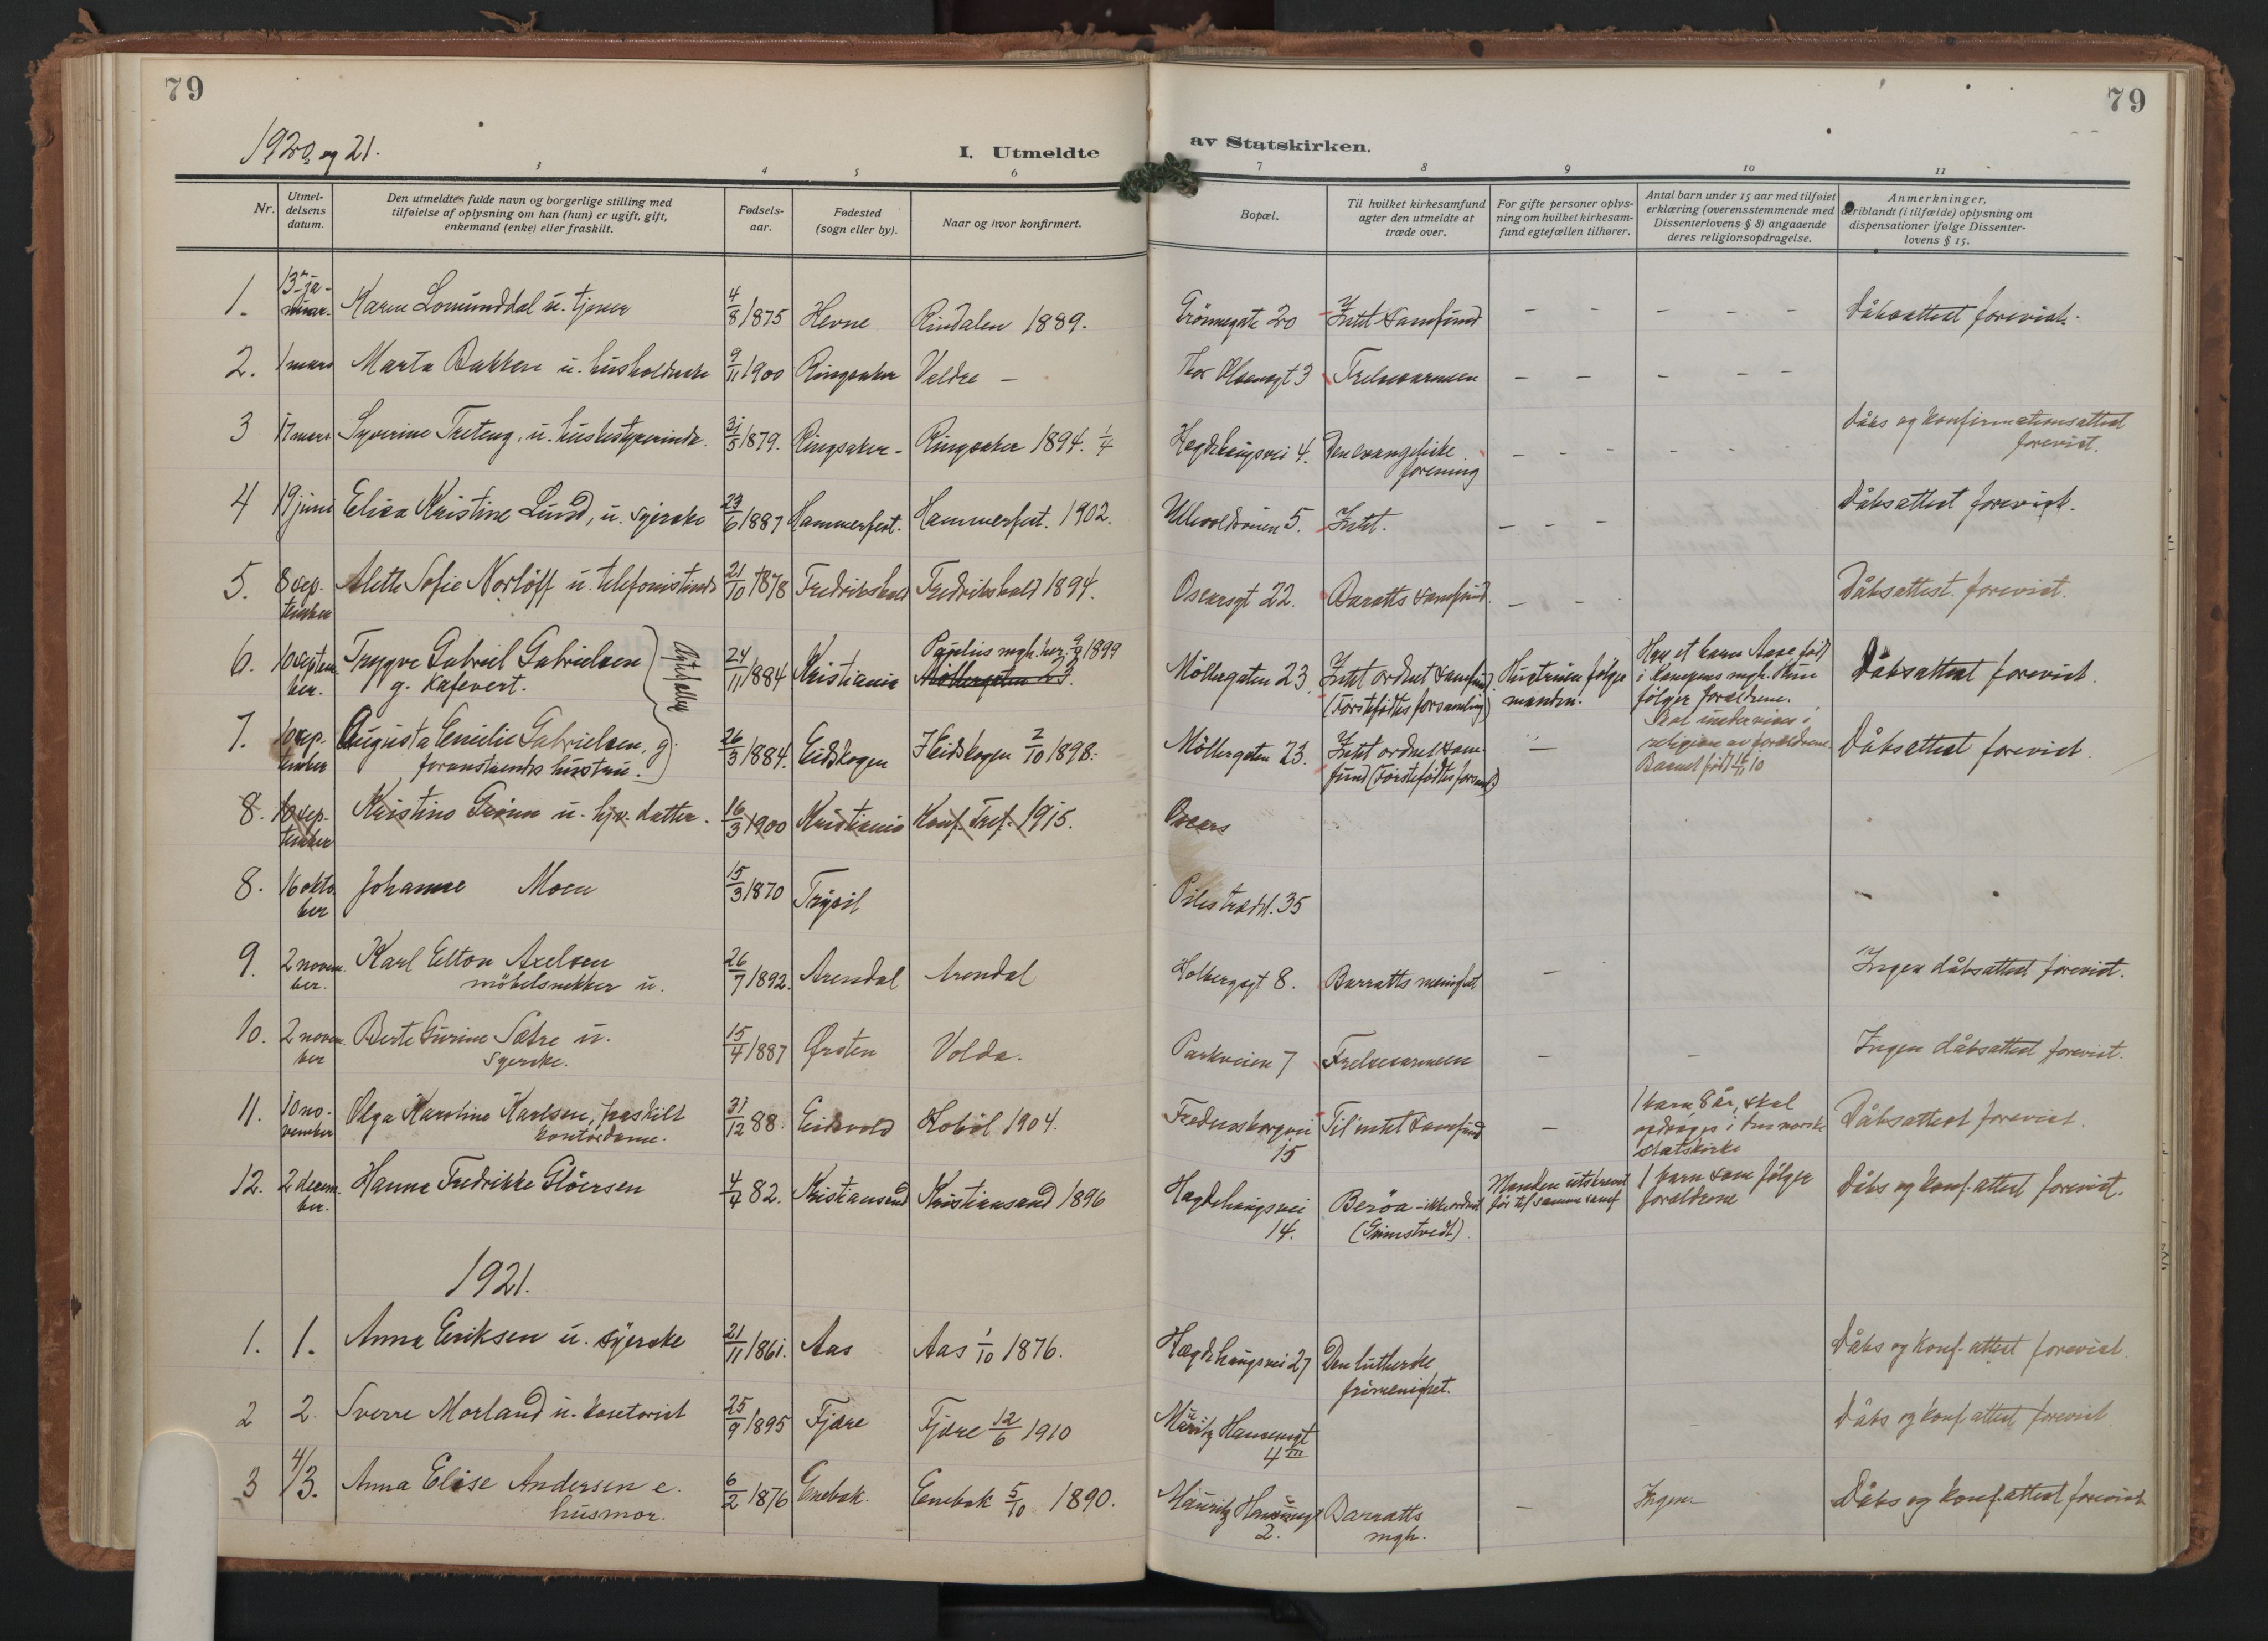 79
79
1920 og 21.
I. Utmeldte
av Statskirken.
3 4 5 6 7 8 9 10 11
Nr.
Utmel-
delsens
datum.
Den utmeldtes fulde navn og borgerlige stilling med
tilføielse af oplysning om han (hun) er ugift, gift,
enkemand (enke) eller fraskilt.
Fødsels-
aar.
Fødested
(sogn eller by).
Naar og hvor konfirmert.
Bopæl.
Til hvilket kirkesamfund
agter den utmeldte at
træde over.
For gifte personer oplys-
ning om hvilket kirkesam-
fund egtefællen tilhører.
Antal barn under 15 aar med tilføiet
erklæring (overensstemmende med
Dissenterlovens § 8) angaaende
deres religionsopdragelse.
Anmerkninger,
deriblandt (i tilfælde) oplysning om
dispensationer ifølge Dissenter-
lovens § 15.
1. 13 ja- Karen Lomunddal u. tjener 4/8 1875 Hevne Rindalen 1889. Grönnegate 20 Intet samfund – – – – – Dåbsattest forevist.
nuar.
2. 1 mars Marta Bakken u. husholderske 9/11 1900 Ringsaker Veldre – Thor Olsensgt 3 Frelsesarmeen – – – – –
3 17 mars Syverine Treteng, u. husbestyrerinde. 31/5 1879. Ringsaker – Ringsaker 1894. 1/4 Hegdehaugsvei 4. Den evangeliske – – – – – – Dåbs og konfirmationsattest
forening
forevist.
4 19 juni Elisa Kristine Lund, u. syerske 23/6 1887 Hammerfest. Hammerfest. 1902. Ullevoldsveien 5. Intet. – – – Dåbsattest forevist.
5. 8 sep- Alette Sofie Norlöff u. telefonistinde 21/10 1878 Fredrikshald Fredrikshald 1894. Oscarsgt 22. Baratts samfund. – – Dåbsattest. forevist.
tember
6. 10 septem- Trygve Gabriel Gabrielsen 24/11 1884 Kristiania Paulus mgh. her. 9/9 1899 Möllergaten 23. Intet ordnet samfund Hustruen følger Har et barn Aase født Dåbsattest forevist.
ber. g. Kafevert. Möllergaten 23. (Förstefödtes forsamling) manden. i Kampens mgh. Hun
følger forældrene.
Egtefolk
7. 10 sep- Augusta Emilie Gabrielsen, g. 26/3 1884. Eidskogen Eidskogen 2/10 1898. Möllergaten 23. Intet ordnet sam- – Skal undervises i Dåbsattest forevist.
tember foranstaaendes hustru. fund (Förstefödtes forsaml.) religion av forældrene.
Barnet født 16/11 10
8. 10 sep- Kristine Grönn u. hjv. datter. 16/3 1900 Kristiania Konf. Tref. 1915. Oscars
tember
8. 16 okto- Johanne Moen 15/3 1870 Trysil Pilestrædet. 35
ber
9. 2 novem- Karl Elton Axelsen 26/7 1892. Arendal Arendal Holbergsgt 8. Barratts menighet – Ingen dåbsattest forevist.
ber. möbelsnekker u.
10. 2 novem- Berte Gurine Sætre u. 15/4 1887 Ørsten Volda. Parkveien 7 Frelsesarmeen – – Ingen dåbsattest forevist.
ber Syerske.
11. 10 no- Olga Karoline Karlsen, fraskilt 31/12 88. Eidsvold Hobøl 1904. Fredensborgvei Til intet samfund – 1 barn, 8 år, skal Dåbsattest forevist.
vember kontordame. 15 opdrages i den norske
statskirke
12. 2 decem- Hanna Fredrikke Glöersen 4/7 82. Kristiansand Kristiansand 1896 Hegdehaugsvei Beröa – ikke ordnet Manden utskrevet 1 barn som følger Dåbs og konf. attest forevist.
ber. 14. (Grimstvedt). før til samme samf forældrene
1921.
1. 1. Anna Eriksen u. syerske 21/11 1861. Aas Aas 1/10 1876. Hægdehaugsvei 27 Den lutherske Dåbs og konf. attest forevist
frimenighet.
2 2. Sverre Morland u. kontorist 25/9 1895 Fjære Fjære 12/6 1910 Mauritz Hansensgt Dåbs og konf attest forevist
4 III
3 4/3. Anna Elise Andersen e. 6/2 1876 Enebak. Enebak 5/10 1890. Mauritz Hansensgt Barratts – Ingen Dåbs og konf. attest forevist
husmor. 2. mgh.